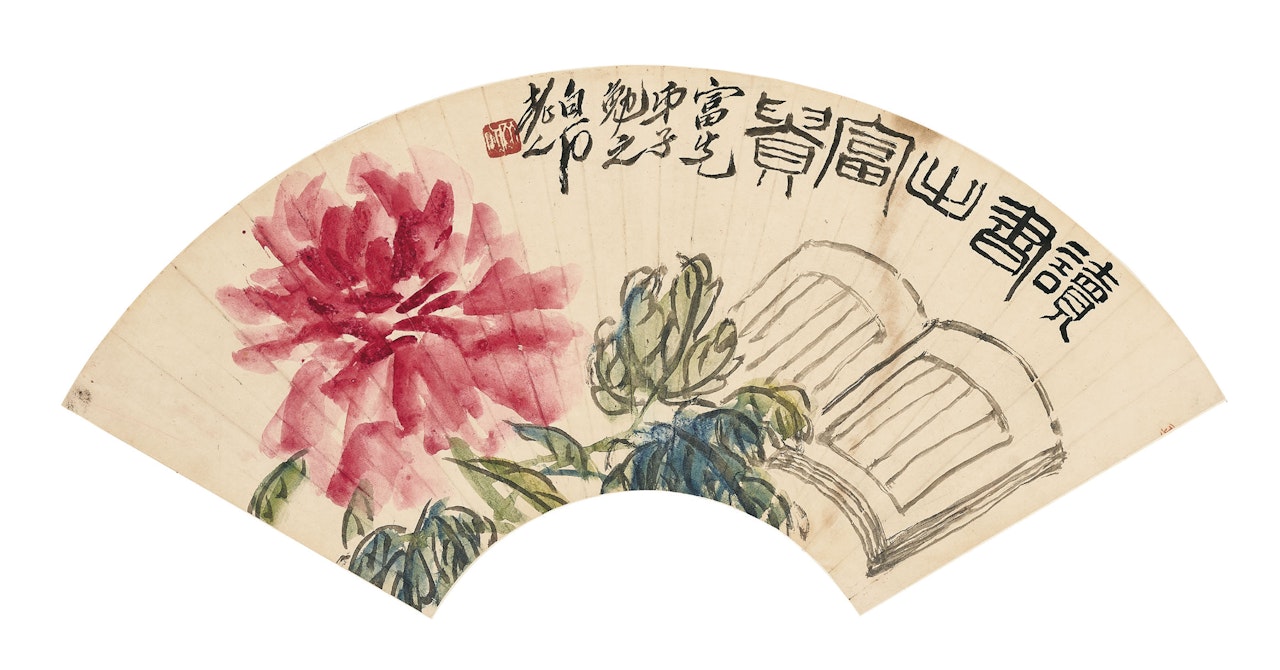 讀書之富貴
富先
弟子
勉之
白石
老人